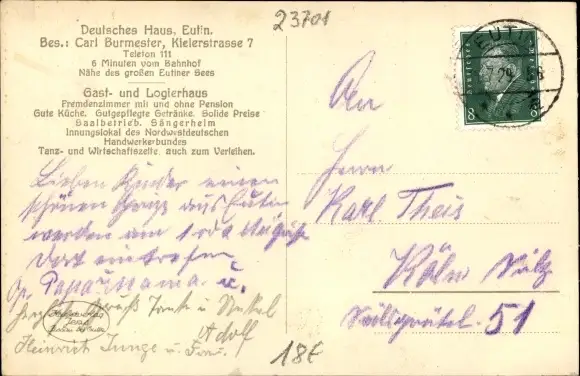 23701
Deutsches Haus, Eutin.
Bes.: Carl Burmester, Kielerstrasse 7
Telefon 111
6 Minuten vom Bahnhof
Nähe des großen Eutiner Sees
Gast- und Logierhaus
Fremdenzimmer mit und ohne Pension
Gute Küche. Gutgepflegte Getränke. Solide Preise
Saalbetrieb. Sängerheim
Innungslokal des Nordwestdeutschen
Handwerkerbundes
Tanz- und Wirtschaftszelte, auch zum Verleihen.
EUTIN
8 8
An
Herrn
Karl Theis
Köln Sülz
51
Lieben Kinder einen
schönen Gruß aus Eutin
werden am
dort eintreffen
Op. Papa u. Mama
Gruß Tante u. Onkel
Adolf
Heinrich Junge u. Frau.
18€